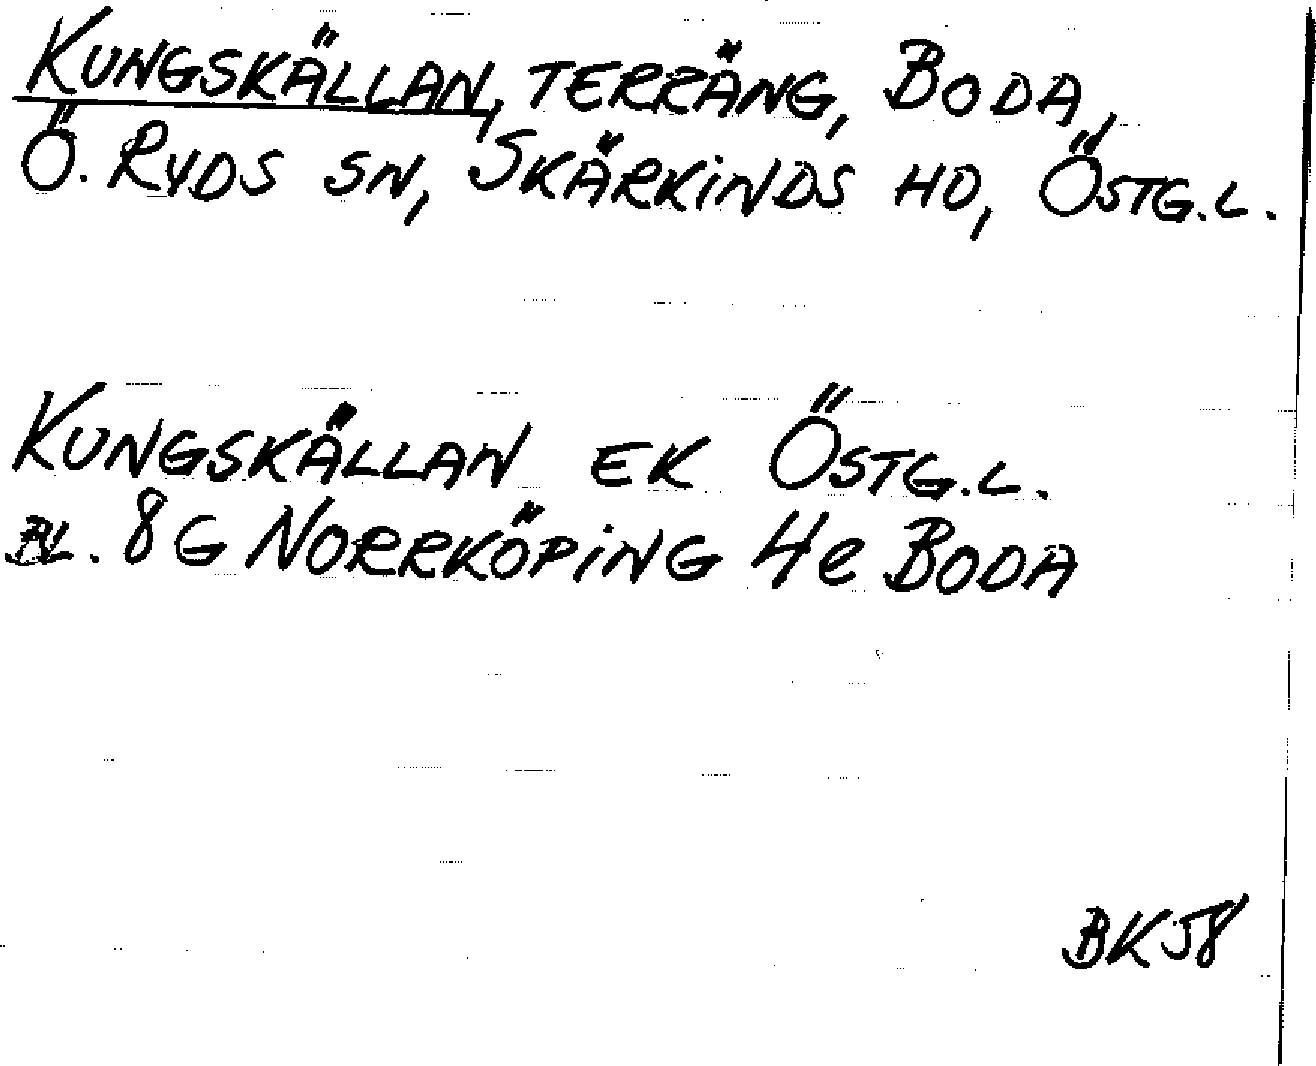 KUNGSKÄLLAN, TERRÄNG, BODA,
Ö. RYDS SN, SKÄRKINDS HD, ÖSTG.L.
KUNGSKÄLLAN EK ÖSTG.L.
BL. 8G NORRKÖPING 4e BODA
BK58